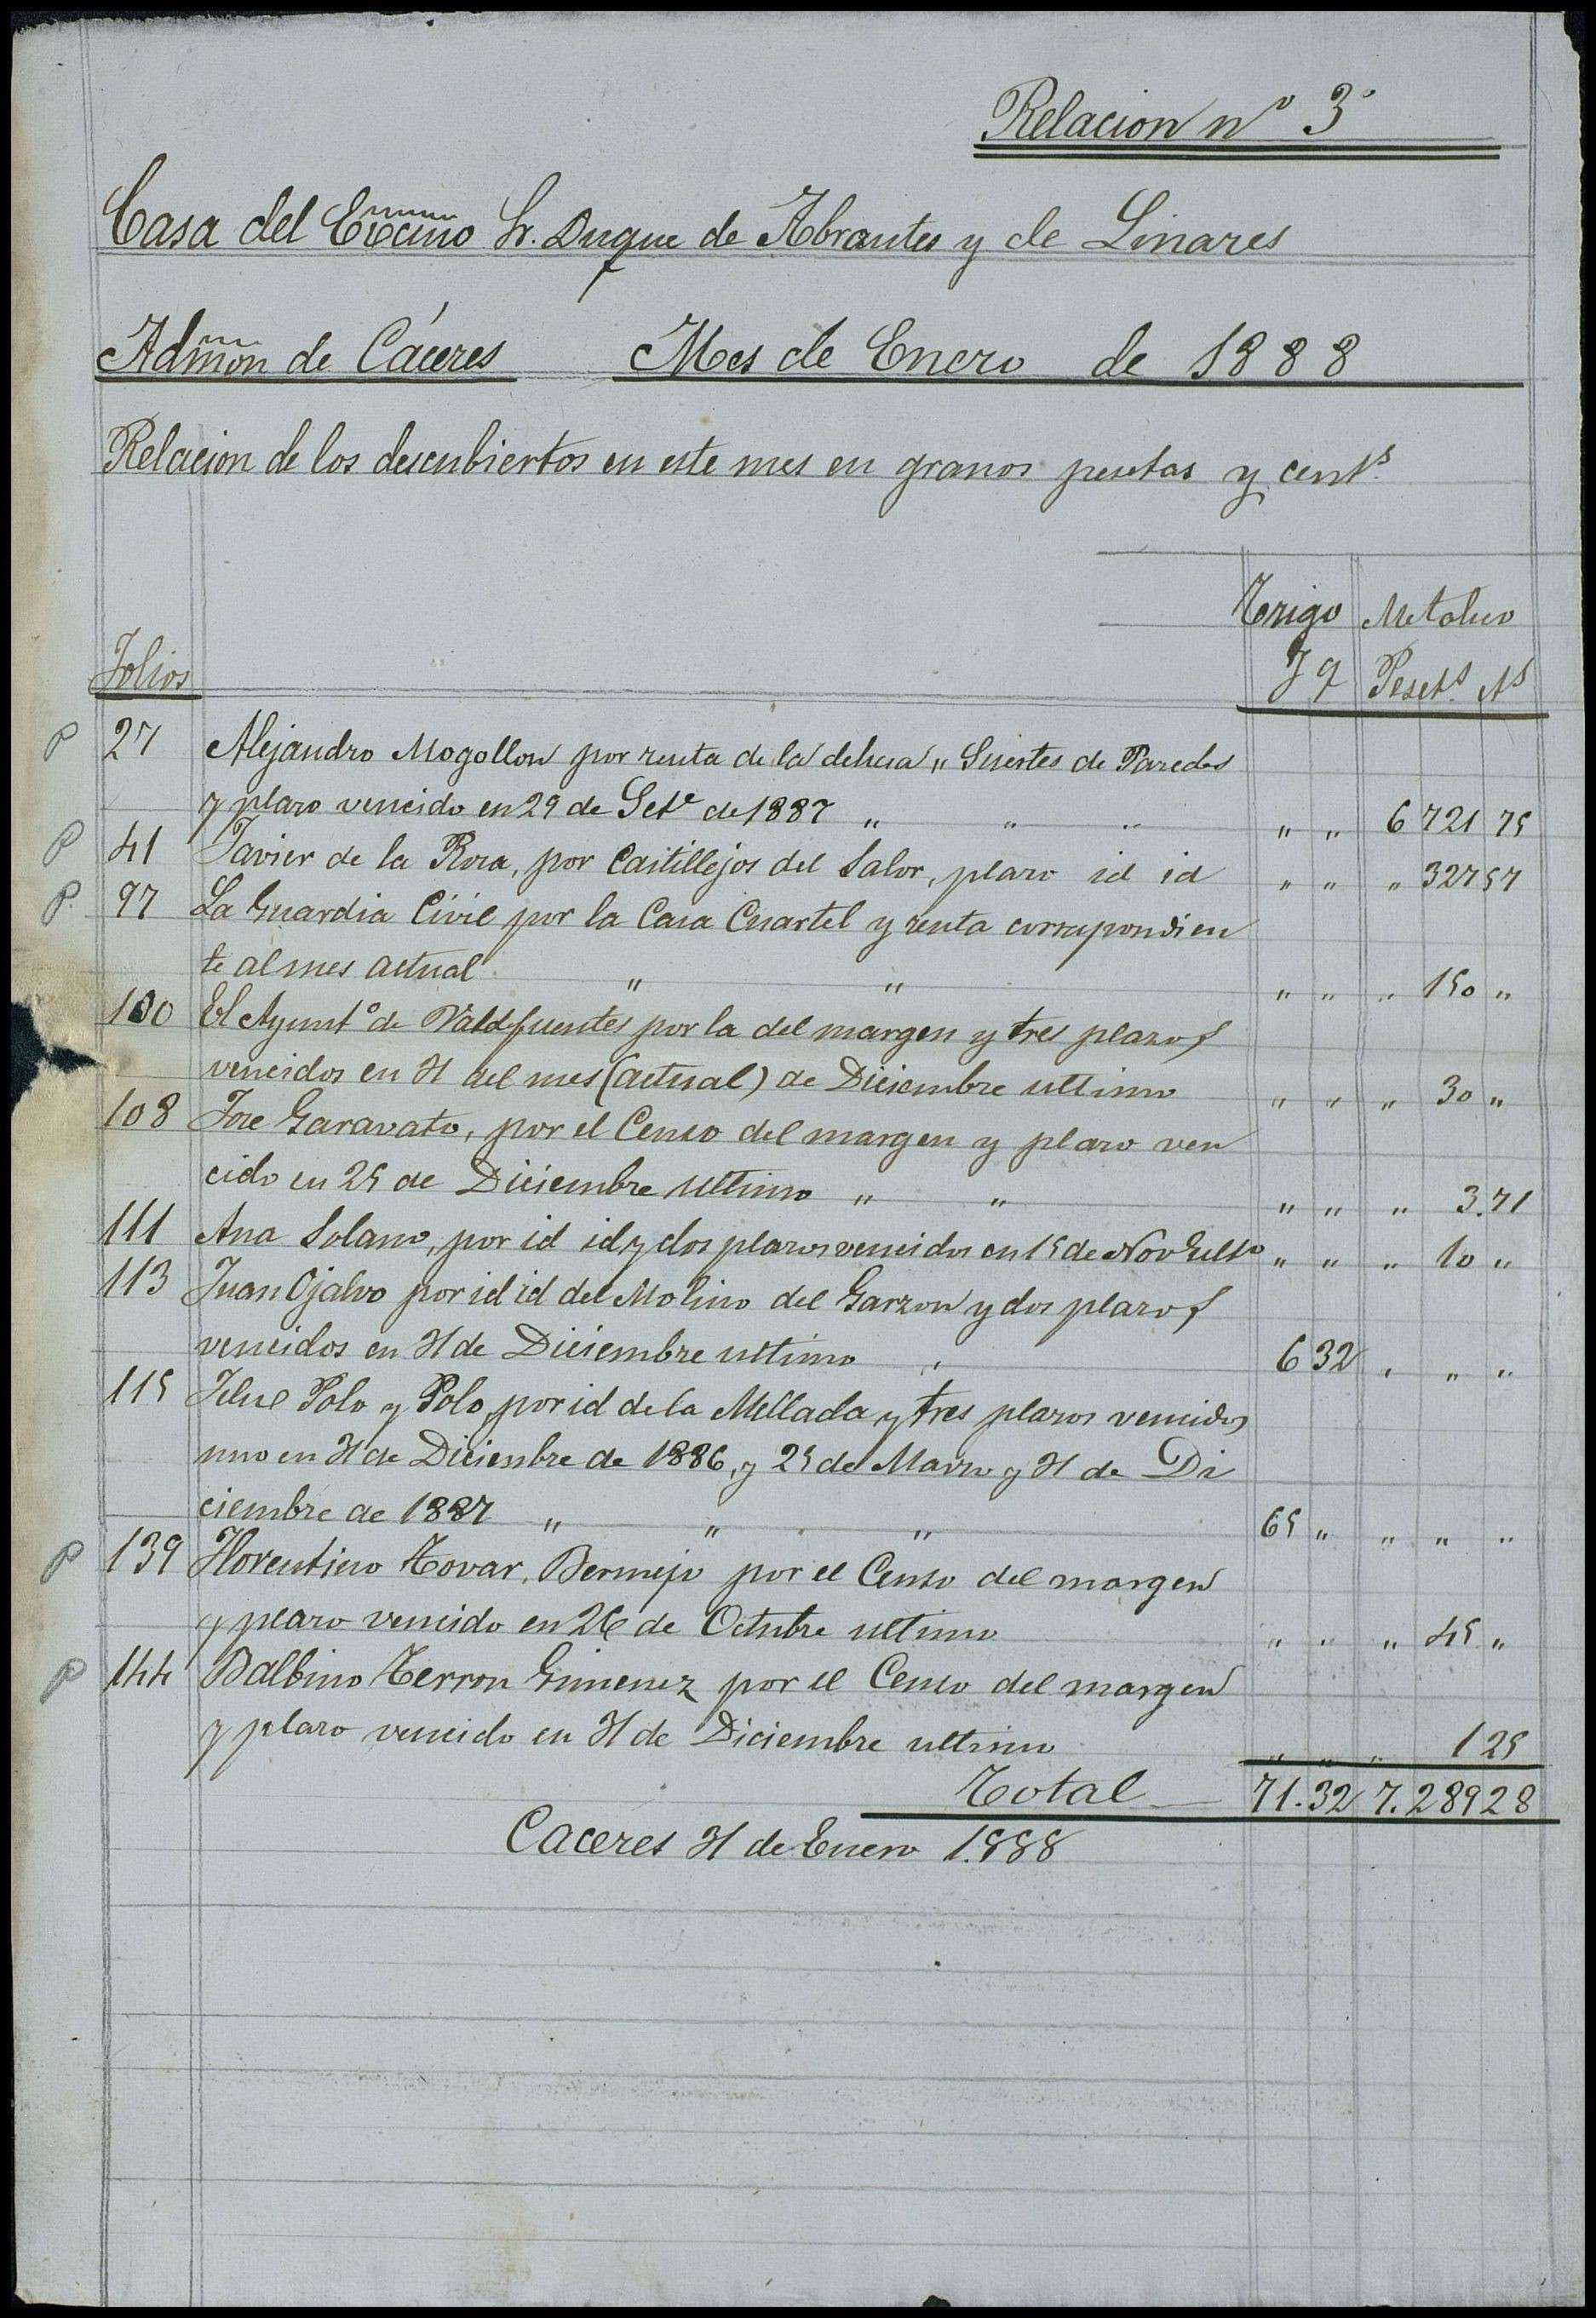 Relacion nº 3º
Casa del Excmo Sr. Duque de Abrantes y de Linares
Admon de Cáceres Mes de Enero de 1888
Relacion de los descubiertos en este mes en granos pesetas y cents.
Trigo Metalico
Folios F q Pesets. cts
P 27 Alejandro Mogollon por renta de la dehesa " Suertes de Paredes
y plazo vencido en 29 de Sete de 1887 " " " " " 6 721 75
P 41 Javier de la Rosa, por Castillejos del Salor, plazo id id " " " 327 57
P. 97 La Guardia Civil por la Casa Cuartel y renta correspondien
te al mes actual " " " " " 150 "
100 El Ayuntº de Valdefuentes por la del margen y tres plazos
vencidos en 31 del mes (actual) de Diciembre ultimo " " " 30 "
108 Jose Garavato, por el Censo del margen y plazo ven
cido en 25 de Diciembre ultimo " " " " " 3.71
111 Ana Solano, por id id y dos plazos vencidos en 15 de Nove ulto " " " 10 "
113 Juan Ojalvo por id id del Molino del Garzon y dos plazos
vencidos en 31 de Diciembre ultimo " 6 32 " " "
115 Polo y Polo, por id de la Mellada y tres plazos vencidos
uno en 31 de Diciembre de 1886, y 25 de Marzo y 31 de Di
ciembre de 1887 " " " 65 " " " "
P 139 Florentino Tovar, Bermejo por el Censo del margen
y plazo vencido en 26 de Octubre ultimo " " " 45 "
P 144 Balbino Terron Gimenez por el Censo del margen
y plazo vencido en 31 de Diciembre ultimo " " " 1 25
Total 71.32 7.289 28
Caceres 31 de Enero 1.888